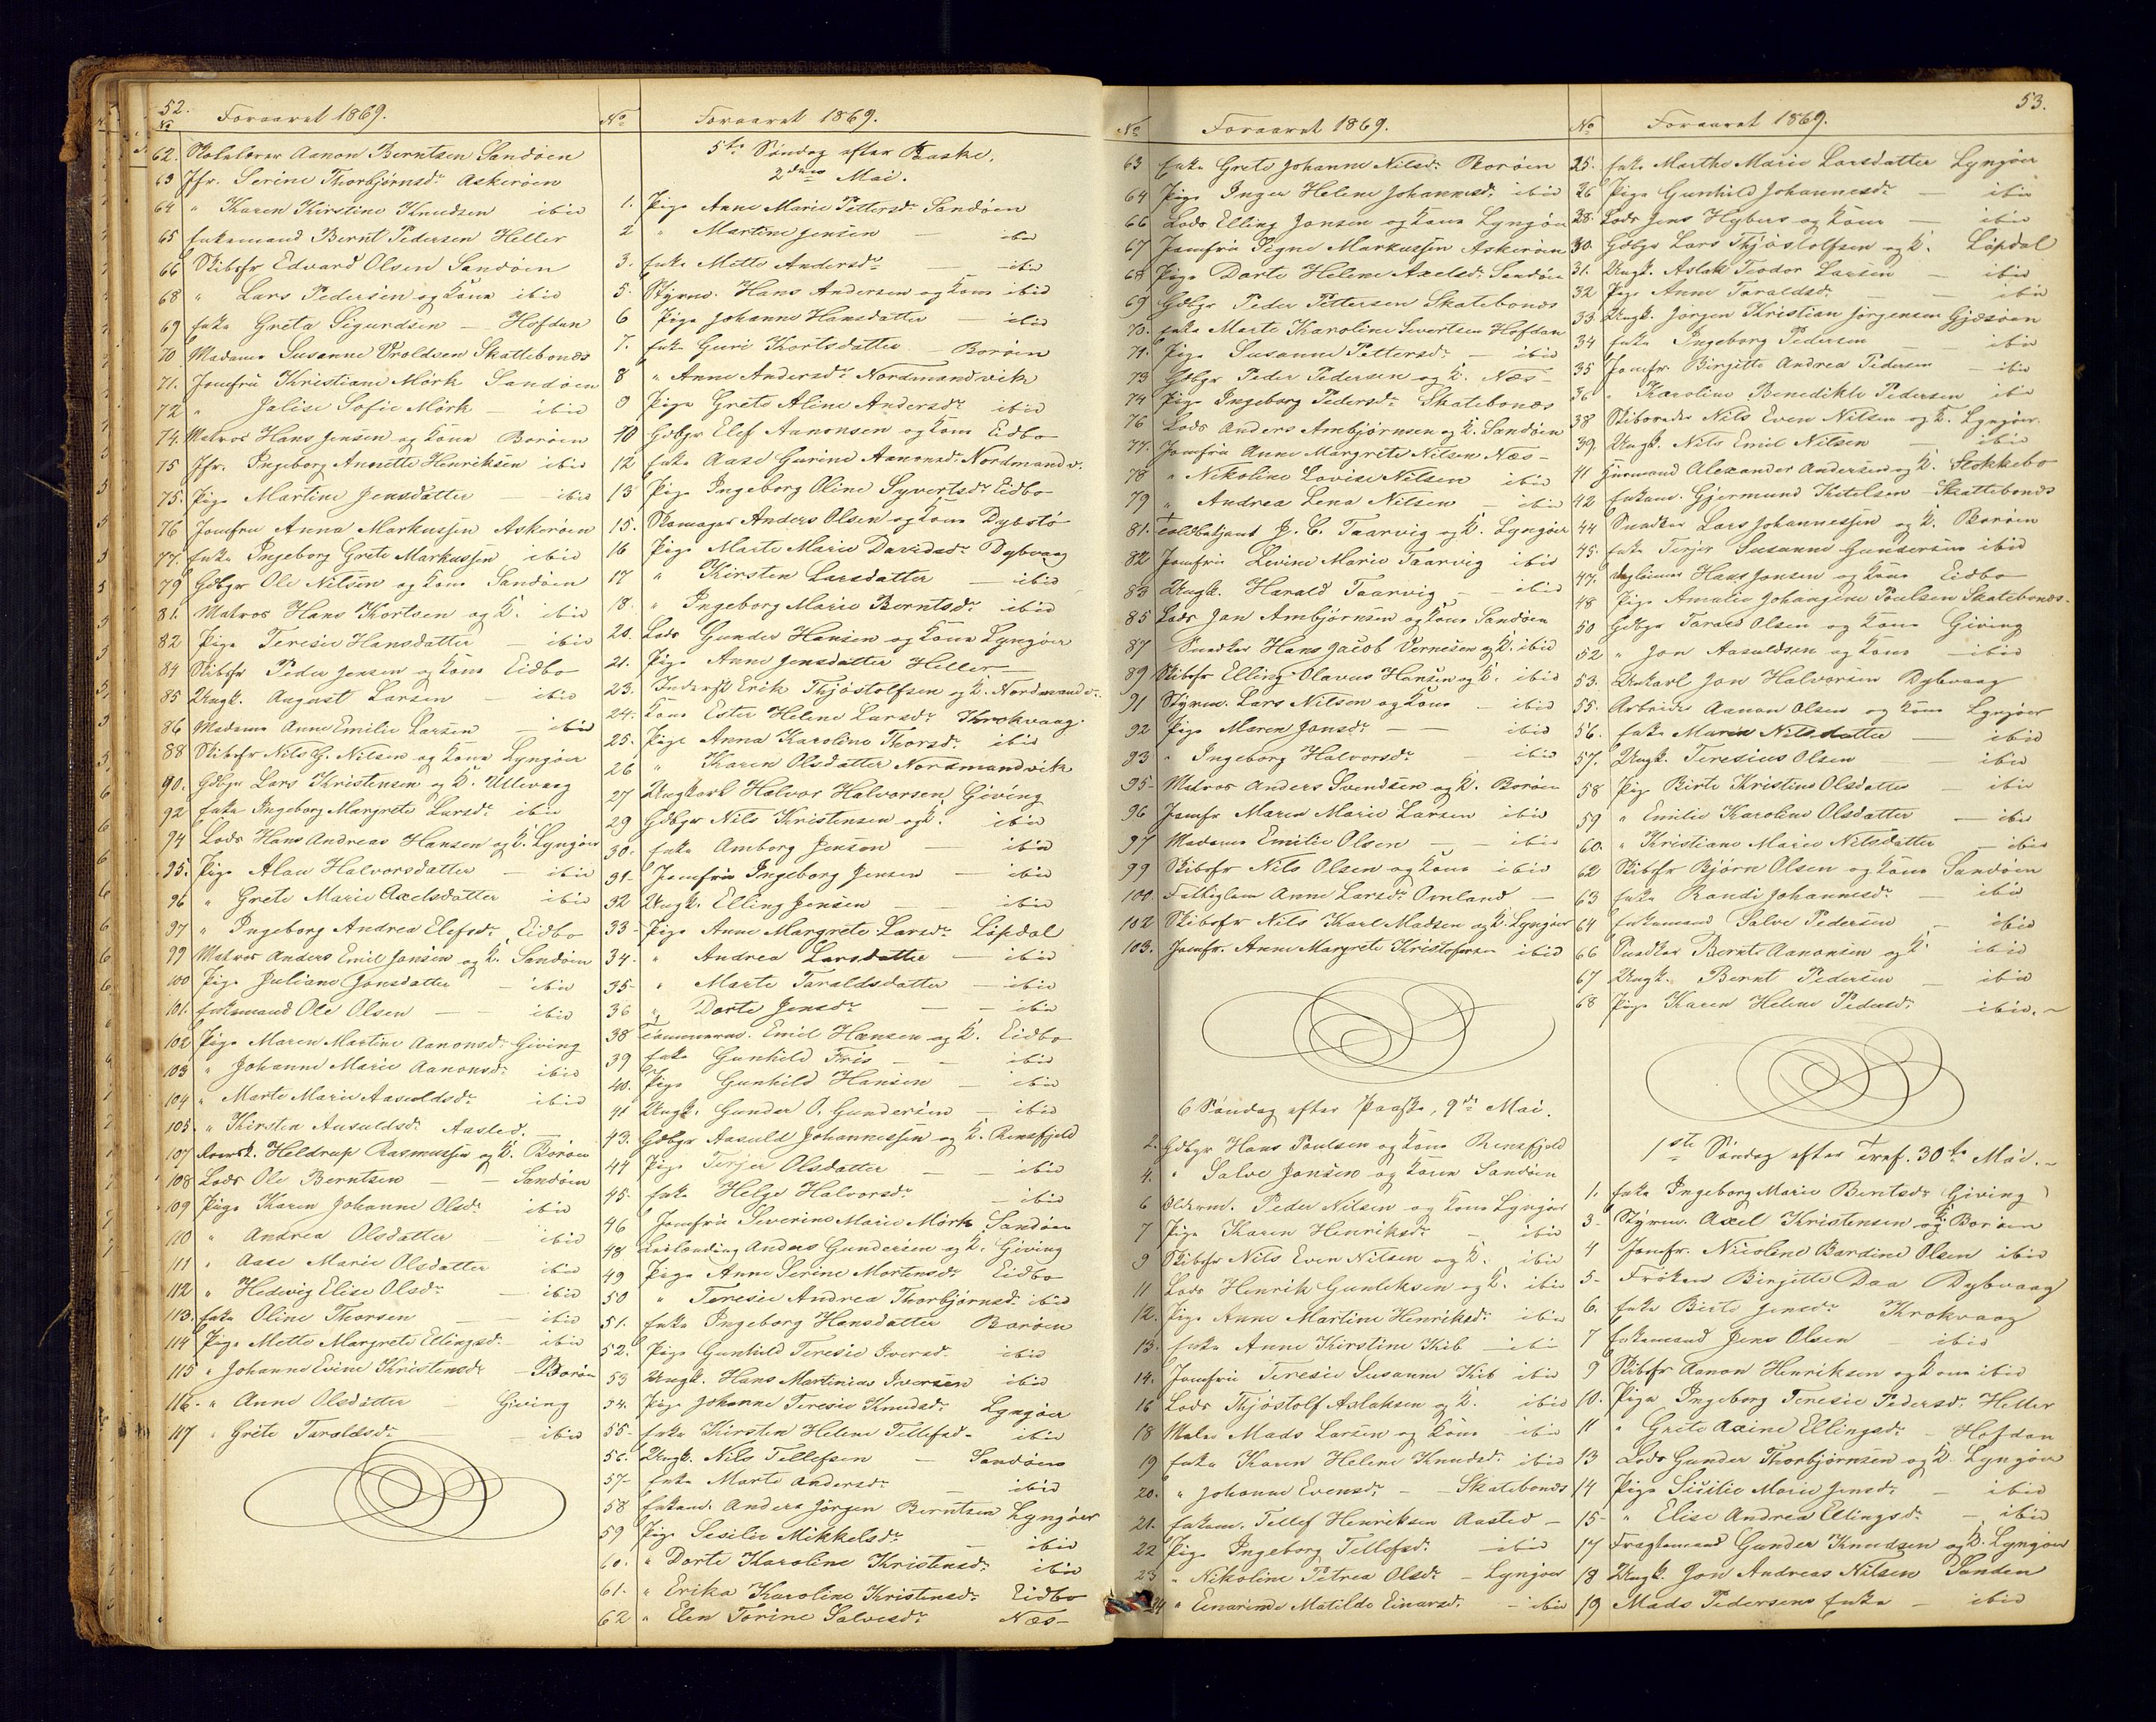 52.
No Foraaret 1869.
62. Skolelærer Aanon Berntsen Sandøen
63 Jfr. Serine Thorbjørnsdr Askerøen
64 " Karen Kirstine Knudsen ibid
65 Enkemand Bernt Pedersen Heller
66 Skibsfr Edvard Olsen Sandøen
68 " Lars Pedersen og Kone ibid
69 Enke Greta Sigurdsen — Hofdan
70 Madame Susanne Vroldsen Skattebonds
71. Jomfru Kristiane Mörk Sandøen
72 " Jalise Sofie Mörk — ibid
74. Matros Hans Jensen og Kone Borøen
75 Jfr. Ingeborg Annette Henriksen ibid
75. Pige Martine Jensdatter — ibid
76 Jomfru Anna Markussen Askerøen
77. Enke Ingeborg Grete Markussen ibid
79 Gdbgr Ole Nilsen og Kone Sandøen
81. Matros Hans Kortsen og K. ibid
82 Pige Teresie Hansdatter — ibid
84 Skibsfr Peder Jensen og Kone Eidbo
85 Ungk. August Larsen — ibid
86 Madame Anne Emilie Larsen — ibid
88 Skibsfr Nils G. Nilsen og Kone Lyngøer
90. Gdbgr Lars Kristensen og K. Ullevaag
92 Enke Ingeborg Margrete Larsdr ibid
94 Lods Hans Andreas Hansen og K. Lyngøer
95. Pige Alau Halvorsdatter — ibid
96 " Grete Marie Axelsdatter ibid
97 " Ingeborg Andrea Elefsdr Eidbo
99 Matros Anders Emil Jansen og K. Sandøen
100 Pige Juliane Jonsdatter — ibid
101. Enkemand Ole Olsen — ibid
102 Pige Maren Martine Aanonsdr Giving
103 " Johanne Marie Aanonsdr ibid
104 " Marte Marie Aasuldsdr ibid
105. " Kirsten Ausuldsdr Aasted.
107 Heldrup Rasmussen og K. Borøen
108 Lods Ole Berntsen — Sandøen
109 Pige Karen Johanne Olsdr ibid
110 " Andrea Olsdatter — ibid
111 " Aase Marie Olsdatter ibid
112 " Hedevig Elise Olsdr — ibid
113. Enke Oline Thorsen — ibid
114 Pige Mette Margrete Ellingsdr ibid
115 " Johanne Evine Kristensdr — Borøen
116. " Anne Olsdatter — Giving
117 " Grete Taraldsdr — ibid
No Foraaret 1869.
5te Søndag efter Paaske.
2den Mai.
1. Pige Anne Marie Pettersdr Sandøen
2 " Martine Jensen — ibid
3. Enke Mette Andersdr — ibid
5. Styrm. Hans Andersen og Kone ibid
6 Pige Johanne Hansdatter — ibid
7. Enke Guri Kortsdatter — Borøen
8 " Anne Andersdr Nordmandvik
9 Pige Grete Aline Andersdr ibid
10 Gdbgr Elef Aanonsen og Kone Eidbo
12 Enke Aase Gurine Aanonsd. Nordmandv.
13 Pige Ingeborg Oline Syvertsdr Eidbo
15. Skomager Anders Olsen og Kone Dybstø
16 Pige Marte Marie Davidsdr Dybvaag
17 " Kirsten Larsdatter — ibid
18. " Ingeborg Marie Berntsdr ibid
20. Lods Gunder Hansen og Kone Lyngøer
21. Pige Anne Jensdatter Heller
23. Inderst Erik Thjøstolfsen og K. Nordmandv.
24. Kone Ester Helene Larsdr Krokvaag.
25. Pige Anna Karoline Thorsdr ibid
26 " Karen Olsdatter Nordmandvik
27 Ungkarl Halvor Halvorsen Giving
29 Gdbgr Nils Kristensen og K. ibid
30. Enke Amborg Jensen — ibid
31. Jomfru Ingeborg Jensen — ibid
32 Ungk. Elling Jensen — ibid
33. Pige Anne Margrete Larsdr Løsdal
34. " Andrea Larsdatter — ibid
35. " Marte Taraldsdatter — ibid
36 " Dorte Jensdr — ibid
38 Tømmerm. Emil Hansen og K. Eidbo
39 Enke Gunhild Friis — ibid
40. Pige Gunhild Hansen — ibid
41 Ungk. Gunder O. Gundersen — ibid
43. Gdbgr Aasuld Johannessen og K. Rensfjeld
44 Pige Terjer Olsdatter — ibid
45. Enke Helge Halvorsdr — ibid
46 Jomfru Severine Marie Mörk Sandøen
48. Leilænding Anders Gundersen og K. Giving
49 Pige Anne Serine Mortensdr Eidbo
50 " Teresie Andrea Thorbjørnsdr ibid
51. Enke Ingeborg Hansdatter Borøen
52. Pige Gunhild Teresie Iversd. ibid
53 Ungk. Hans Martinius Iversen ibid
54. Pige Johanne Teresie Knudsdr Lyngøer
55. Enke Kirsten Helene Tellefsd. ibid
56. Ungk. Nils Tellefsen — Sandøen
57. Enke Marte Andersdr — ibid
58 Enkem. Anders Jörgen Berntsen Lyngøer
59 Pige Sesilie Mikkelsdr — ibid
60. " Dorte Karoline Kristensdr ibid
61. " Erika Karoline Kristensdr Eidbo
62 " Elen Torine Salvesdr Næs—
No Foraaret 1869.
63 Enke Grete Johanne Nilsdr Borøen
64 Pige Inger Helene Johannesdr ibid
66 Lods Elling Jansen og Kone Lyngøer
67 Jomfru Signe Markussen Askerøen
68 Pige Dorte Helene Axelsdr Sandøen
69 Gdbgr Peder Pettersen Skatebonds
70. Enke Marte Karoline Sivertsen Hofdan
71. Pige Susanne Pettersdr — ibid
73 Gdbgr Peder Pedersen og K. Næs—
74 Pige Ingeborg Pedersdr Skatebonds
76 Lods Anders Ambjørnsen og K. Sandøen
77. Jomfru Anne Margrete Nilsen Næs—
78 " Nikoline Lovise Nilsen ibid
79 " Andrea Lena Nilsen — ibid
81. Toldbetjent J. C. Taarvig og K. Lyngøer
82 Jomfru Levine Marie Taarvig ibid
83 Ungk. Harald Taarvig — ibid
85 Lods Jan Ambjørnsen og Kone Sandøen
87 Snedker Hans Jacob Vernesen og K. ibid
89 Skibsfr Elling Olavus Hansen og K. ibid
91 Styrm. Lars Nilsen og Kone — ibid
92 Pige Maren Jonsdr — ibid
93 " Ingeborg Halvorsdr — ibid
95 Matros Anders Svendsen og K. Borøen
96 Jomfr Maren Marie Larsen ibid
97 Madame Emilie Olsen — ibid
99 Skibsfr Nils Olsen og Kone ibid
100 Fattiglem Anne Larsdr Omland —
102 Skibsfr Nils Karl Madsen og K. Lyngøer
103. Jomfr. Anne Margrete Kristofersen ibid
6 Søndag efter Paaske, 9de Mai.
2. Gdbgr Hans Poulsen og Kone Rensfjeld
4. " Salve Jansen og Kone Sandøen
6 Olderm. Peder Nilsen og Kone Lyngøer
7 Pige Karen Henriksdr — ibid
9 Skibsfr Nils Even Nilsen og K. ibid
11 Lods Henrik Gunleksen og K. ibid
12. Pige Anne Martine Henriksdr ibid
13. Enke Anne Kirstine Kib — ibid
14. Jomfru Teresie Susanne Kib ibid
16 Lods Thjøstolf Aslaksen og K. ibid
18 Maler Mads Larsen og Kone ibid
19 Enke Karen Helene Knudsdr ibid
20. " Johanne Evensdr — Skatebonds
21. Enkem. Tellef Henriksen Aasted —
22 Pige Ingeborg Tellefsdr ibid
23 " Nikoline Petrea Olsdr — Lyngøer
24 " Einarinde Matilde Einarsdr — ibid
53.
No Foraaret 1869.
25. Enke Marthe Marie Larsdatter Lyngøer
26 Pige Gunhild Johannesdr — ibid
28. Lods Jens Hybers og Kone — ibid
30. Gdbgr Lars Thjøstolfsen og K. Løsdal
31. Ungk. Aslak Teodor Larsen — ibid
32 Pige Anne Taraldsd. — ibid
33 Ungk. Jørgen Kristian Jørgensen Gjæsøen
34 Enke Ingeborg Pedersen — ibid
35 Jomfr. Birgitte Andrea Pedersen — ibid
36 " Karoline Benedikte Pedersen ibid
38 Skibsreder Nils Even Nilsen og K. Lyngøer.
39. Ungk. Nils Emil Nilsen — ibid
41 Huusmand Alexander Andersen og K. Stokkebo
42 Enkem. Gjermund Ketelsen Skattebonds
44 Snedker Lars Johannessen og K. Borøen
45. Enke Terjer Susanne Gundersen ibid
47. Hans Jonsen og Kone Eidbo
48 Pige Amalie Johangine Poulsen Skatebonds.
50 Gdbgr Tarald Olsen og Kone Giving
52 " Jon Aasuldsen og Kone — ibid
53. Unkarl Jon Halvorsen Dybvaag
55. Arbeider Aanon Olsen og Kone Lyngøer
56. Enke Maria Nilsdatter — ibid
57. Ungk. Teresius Olsen — ibid
58 Pig Birte Kristine Olsdatter — ibid
59 " Emilie Karoline Olsdatter — ibid
60. " Kristiane Marie Nilsdatter — ibid
62 Skibsfr Bjørn Olsen og Kone Sandøen
63 Enke Randi Johannesdr — ibid
64 Enkemand Salve Pedersen — ibid
66 Snedker Bernt Aanonsen og K. ibid
67 Ungk. Bernt Pedersen — ibid
68 Pige Karen Helene Pedersd. ibid.—
1ste Søndag efter Tref. 30te Mai.—
1. Enke Ingeborg Marie Berntsdr Giving
3 Styrm. Axel Kristensen og K. Borøen
4 Jomfr. Nicoline Bardine Olsen ibid
5 Frøken Birgitte Daa Dybvaag
6. Enke Birte Jensdr Krokvaag
7 Enkemand Jens Olsen — ibid
9 Skibsfr Aanon Henriksen og Kone ibid
10. Pige Ingeborg Teresie Pedersd. Heller
11 " Grete Axine Ellingsdr — Hofdan
13 Lods Gunder Thorbjørnsen og K. Lyngøer
14 Pige Sicilie Marie Jensdr — ibid
15 " Elise Andrea Ellingsdr — ibid
17 Fragtemand Gunder Knudsen og K. Lyngøer
18 Ungk. Jon Andreas Nilsen Sanden
19 Mads Pedersens Enke — ibid